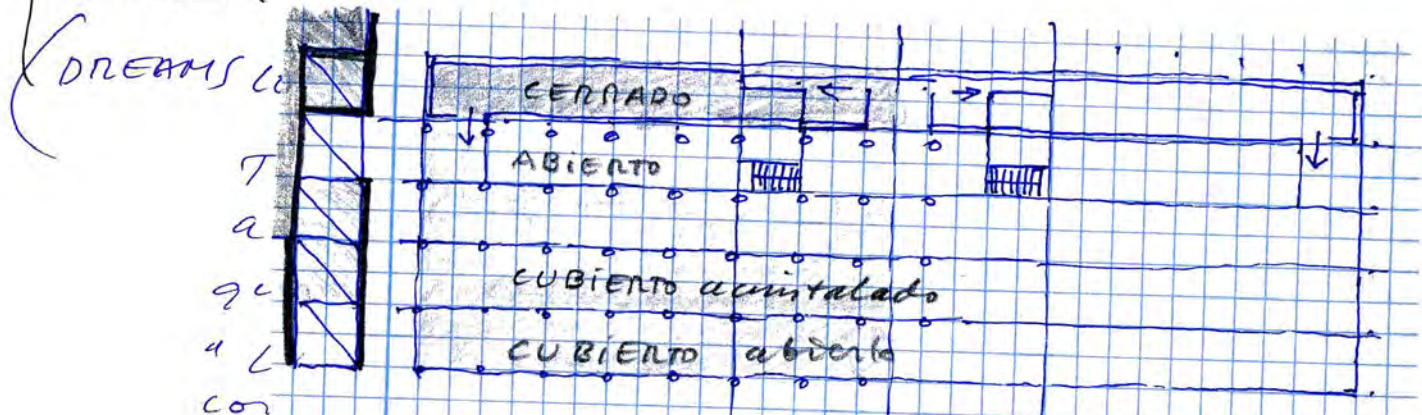 DREAMS
CERRADO
ABIERTO
T
a
CUBIERTO acristalado
CUBIERTO abierto